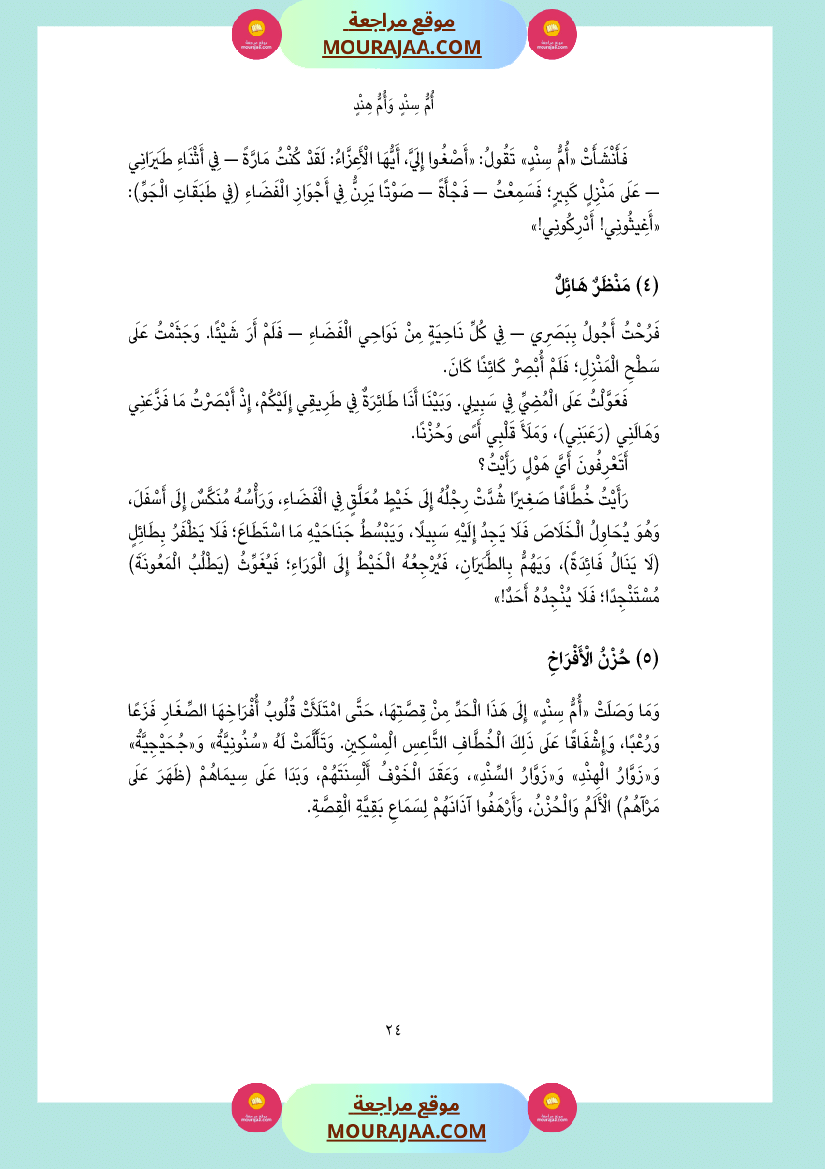 موقع مراجعة
MOURAJAA.COM
أُمُّ سِنْدٍ وَأُمُّ هِنْدٍ
فَأَنْشَأَتْ «أُمُّ سِنْدٍ» تَقُولُ: «أَصْغُوا إِلَيَّ، أَيُّهَا الْأَعِزَّاءُ: لَقَدْ كُنْتُ مَارَّةً — فِي أَثْنَاءِ طَيَرَانِي
— عَلَى مَنْزِلٍ كَبِيرٍ؛ فَسَمِعْتُ — فَجْأَةً — صَوْتًا يَرِنُّ فِي أَجْوَازِ الْفَضَاءِ (فِي طَبَقَاتِ الْجَوِّ):
«أَغِيثُونِي! أَدْرِكُونِي!»
(٤) مَنْظَرٌ هَائِلٌ
فَرُحْتُ أَجُولُ بِبَصَرِي — فِي كُلِّ نَاحِيَةٍ مِنْ نَوَاحِي الْفَضَاءِ — فَلَمْ أَرَ شَيْئًا. وَجَثَمْتُ عَلَى
سَطْحِ الْمَنْزِلِ؛ فَلَمْ أُبْصِرْ كَائِنًا كَانَ.
فَعَوَّلْتُ عَلَى الْمُضِيِّ فِي سَبِيلِي. وَبَيْنَا أَنَا طَائِرَةٌ فِي طَرِيقِي إِلَيْكُمْ، إِذْ أَبْصَرْتُ مَا فَزَّعَنِي
وَهَالَنِي (رَعَبَنِي)، وَمَلَأَ قَلْبِي أَسًى وَحُزْنًا.
أَتَعْرِفُونَ أَيَّ هَوْلٍ رَأَيْتُ؟
رَأَيْتُ خُطَّافًا صَغِيرًا شُدَّتْ رِجْلُهُ إِلَى خَيْطٍ مُعَلَّقٍ فِي الْفَضَاءِ، وَرَأْسُهُ مُنَكَّسٌ إِلَى أَسْفَلَ،
وَهُوَ يُحَاوِلُ الْخَلَاصَ فَلَا يَجِدُ إِلَيْهِ سَبِيلًا، وَيَبْسُطُ جَنَاحَيْهِ مَا اسْتَطَاعَ؛ فَلَا يَظْفَرُ بِطَائِلٍ
(لَا يَنَالُ فَائِدَةً)، وَيَهُمُّ بِالطَّيَرَانِ، فَيُرْجِعُهُ الْخَيْطُ إِلَى الْوَرَاءِ؛ فَيُغَوِّثُ (يَطْلُبُ الْمَعُونَةَ)
مُسْتَنْجِدًا؛ فَلَا يُنْجِدُهُ أَحَدٌ!»
(٥) حُزْنُ الْأَفْرَاخِ
وَمَا وَصَلَتْ «أُمُّ سِنْدٍ» إِلَى هَذَا الْحَدِّ مِنْ قِصَّتِهَا، حَتَّى امْتَلَأَتْ قُلُوبُ أُفْرَاخِهَا الصِّغَارِ فَزَعًا
وَرُعْبًا، وَإِشْفَاقًا عَلَى ذَلِكَ الْخُطَّافِ التَّاعِسِ الْمِسْكِينِ. وَتَأَلَّمَتْ لَهُ «سُنُونِيَّةُ» وَ«جُحَيْجِيَّةُ»
وَ«زَوَّارُ الْهِنْدِ» وَ«زَوَّارُ السِّنْدِ»، وَعَقَدَ الْخَوْفُ أَلْسِنَتَهُمْ، وَبَدَا عَلَى سِيمَاهُمْ (ظَهَرَ عَلَى
مَرْآهُمُ) الْأَلَمُ وَالْحُزْنُ، وَأَرْهَفُوا آذَانَهُمْ لِسَمَاعِ بَقِيَّةِ الْقِصَّةِ.
٢٤
موقع مراجعة
MOURAJAA.COM